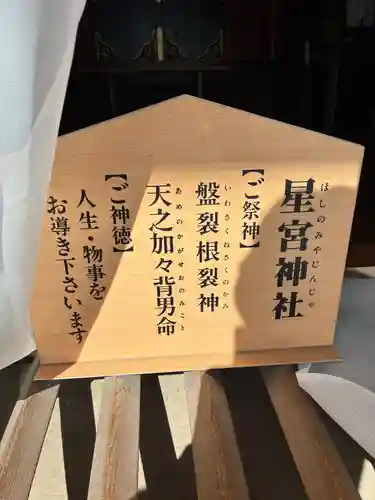 星宮神社
ほしのみやじんじゃ
【ご祭神】
盤裂根裂神
いわさくねさくのかみ
天之加々背男命
あめのかがせおのみこと
【ご神徳】
人生・物事を
お導き下さいます